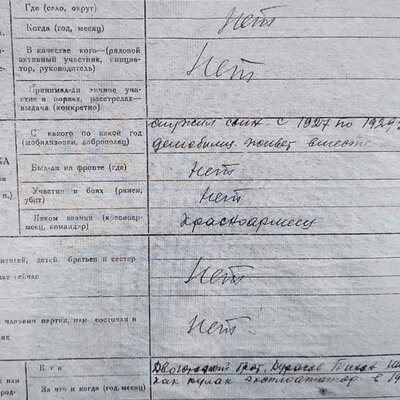 Где (село, округ)
Нет
Когда (год, месяц)
В качестве кого—(рядовой
активный участник, инициа-
тор, руководитель)
Нет
Принимал-ли личное уча-
стие в порках, расстрелах—
выдача (конкретно)
С какого по какой год
(мобилизован, доброволец)
служил сын с 1927 по 1929
демобилиз. живет вместе
КА
Был-ли на фронте (где)
Нет
п.)
Участие в боях (ранен,
убит)
Нет
Каком звании (красноар-
меец, командир)
Красноармеец
детей, братьев и сестер
сейчас
Нет
членами партии, или состояли в
Нет
Кто
Двоюродный брат,
или
За что и когда (год, месяц)
как кулак эксплоататор в